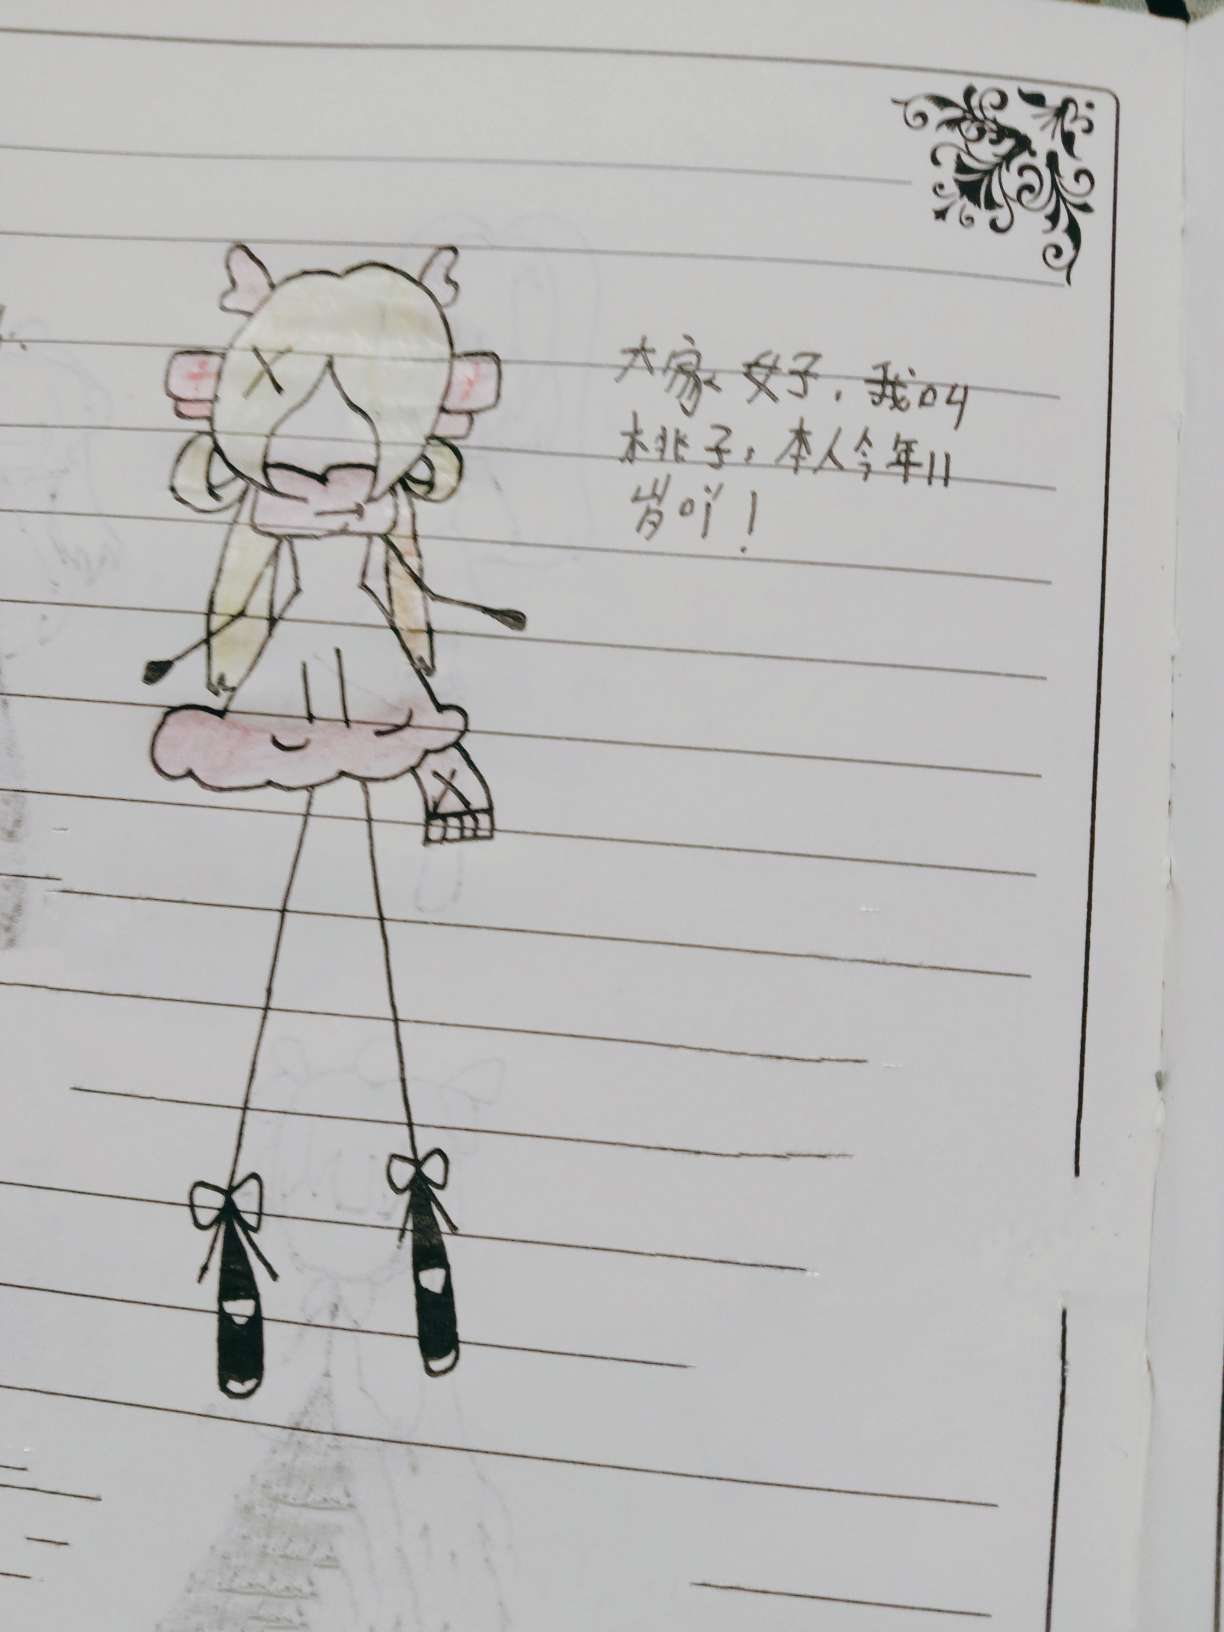 大家好，我叫
桃子，本人今年11
岁吖！